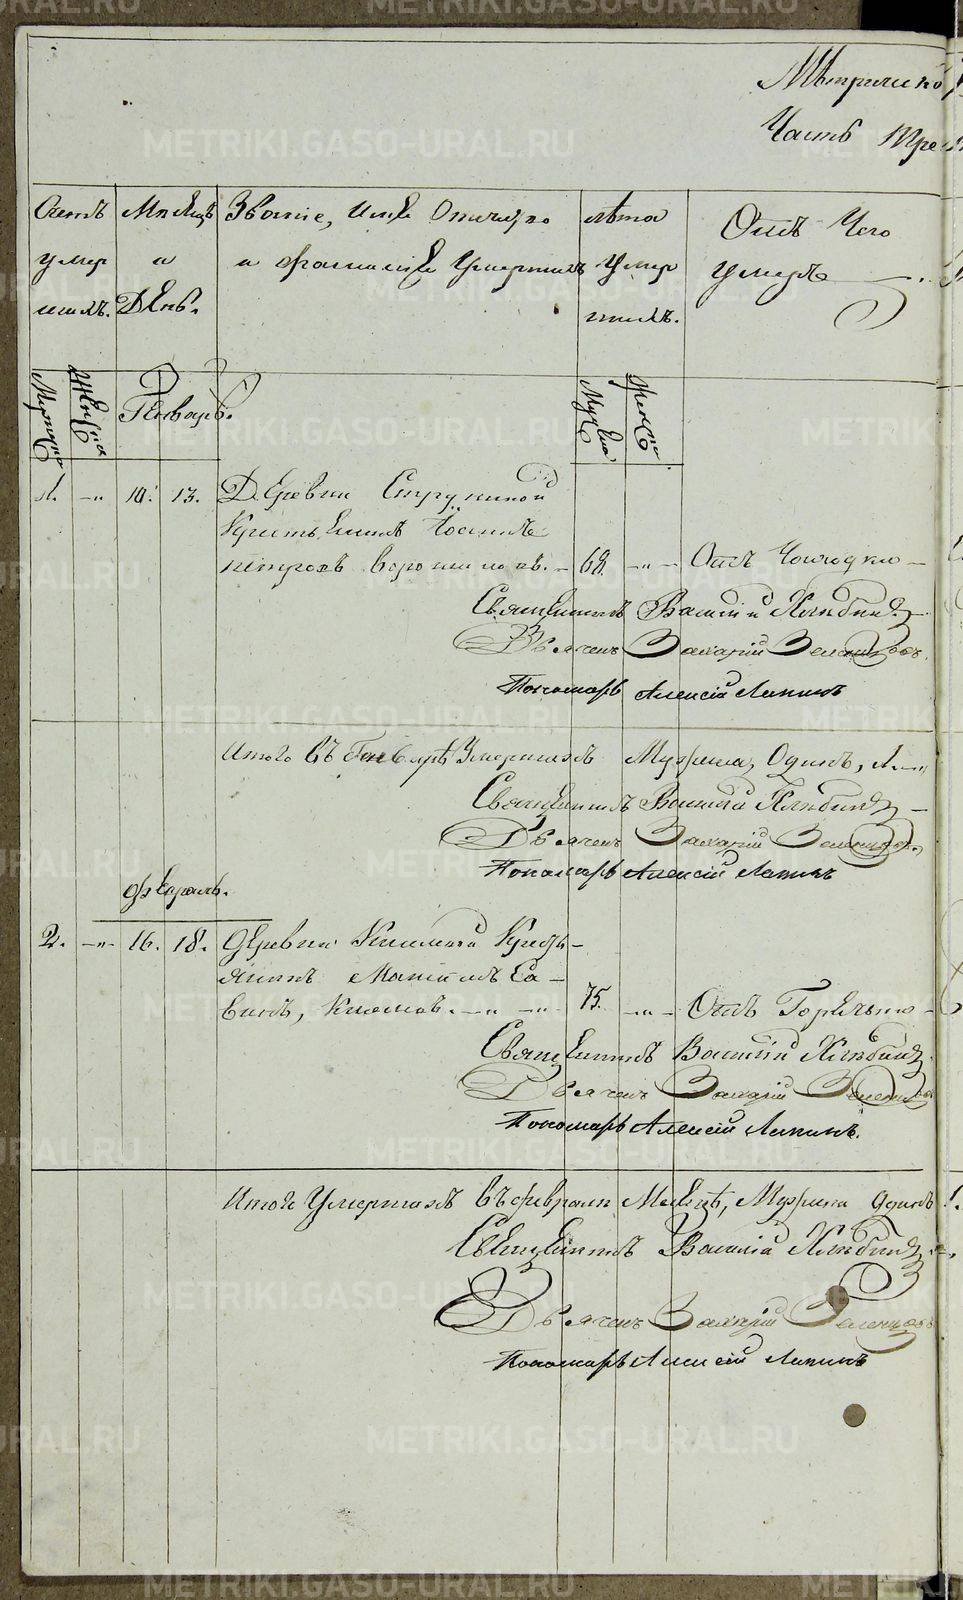 Метрической
Часть Треть
Счетъ Месяцъ Званіе, Имя Отечество лета Отъ Чего
умер и и фамилія Умершихъ Умер умеръ
шихъ. День. шихъ.
Мужеска Женска Генварь. Мужеска Женска
1. -"- 10. 13. Деревни Струниной
Крестьянинъ Іосифъ
петровъ воронинъ. - 68. -"- Отъ Чахотки -
Священникъ Василий Хлябинъ
Дьячекъ Захарій Зеленцовъ.
Пономарь Алексій Лапинъ
Итого въ Генваре Умершихъ Мужеска, Одинъ, 1.-"
Священникъ Василий Хлябинъ
Дьячекъ Захарій Зеленцовъ.
Пономарь Алексій Лапинъ
февраль.
2. -"- 16. 18. деревни Крестья-
янинъ Са-
винъ, -"- -"- 75. -"- Отъ Горячки -
Священникъ Василій Хлябинъ.
Дьячекъ Захарій Зеленцовъ
Пономарь Алексій Лапинъ.
Итого Умершихъ въ феврале Месяце, Мужеска одинъ 1.
Священникъ Василій Хлябинъ
Дьячекъ Захарій Зеленцовъ
Пономарь Алексій Лапинъ
METRIKI.GASO-URAL.RU